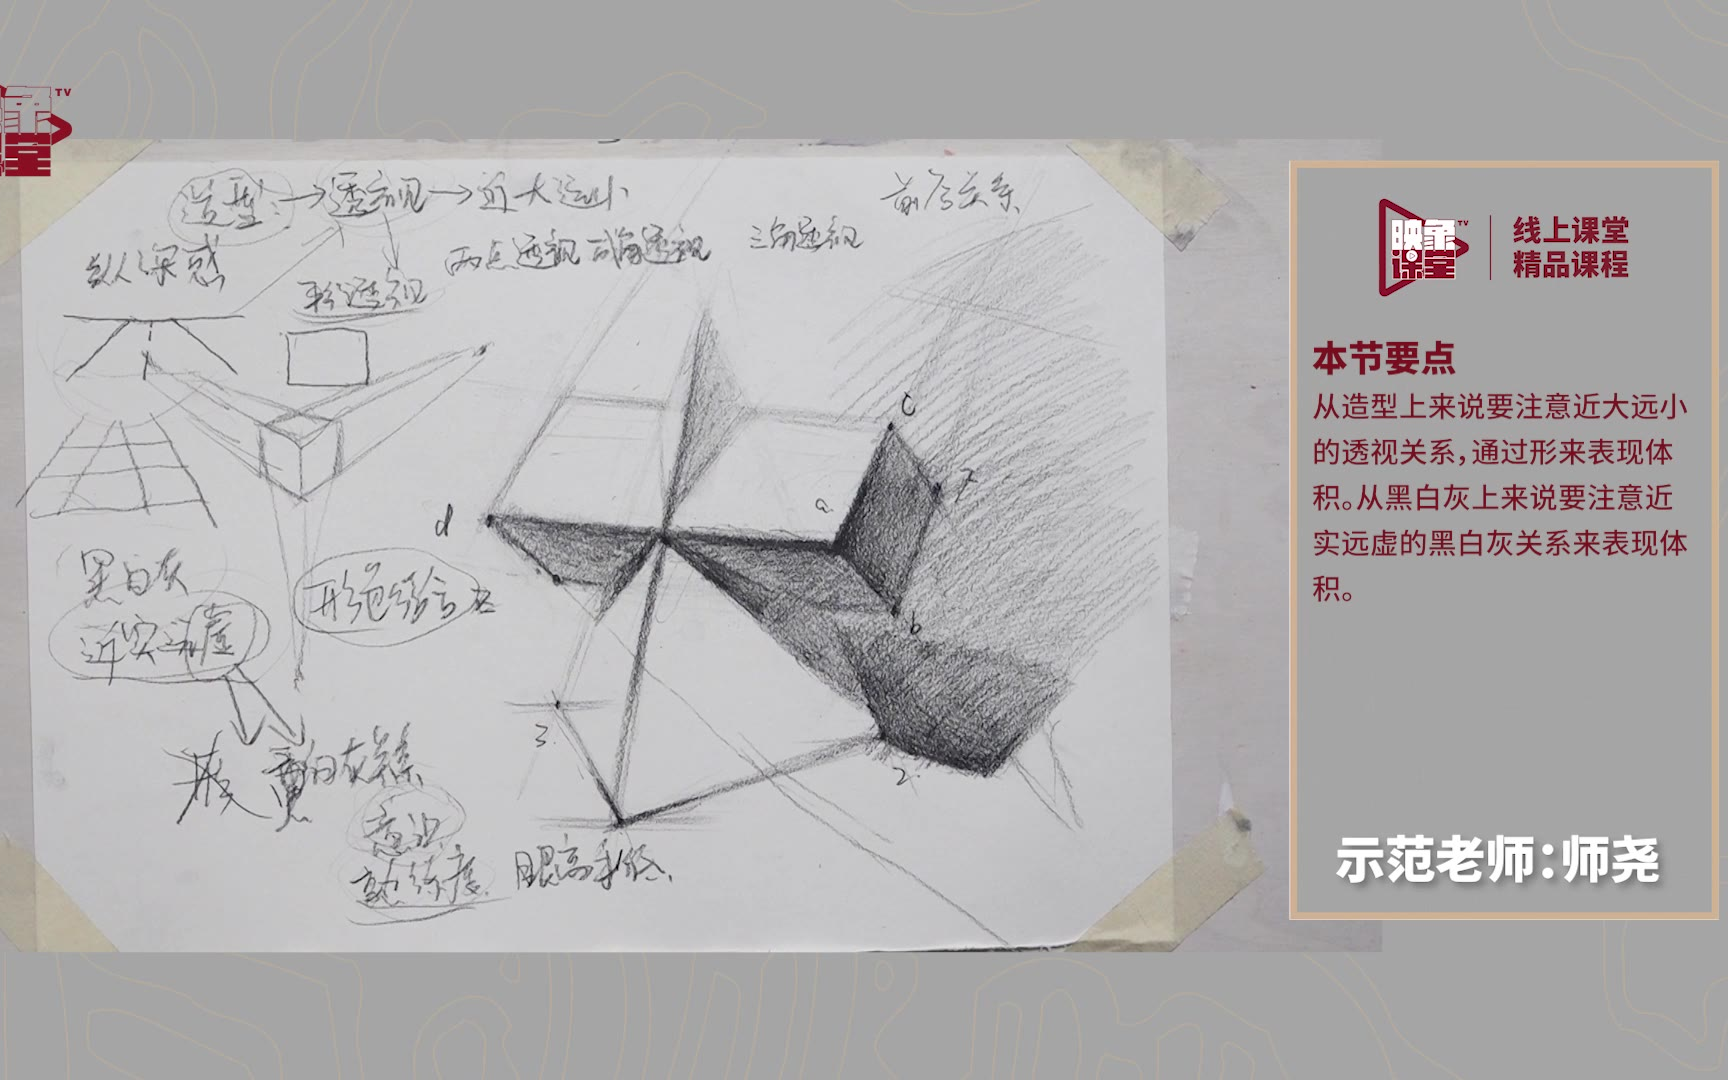 象 TV
堂
造型:→透视→近大远小
前后关系
纵深感
两点透视 成角透视 三角透视
平行透视
c
a
d
b
黑白灰
近实远虚
形色结合
3.
2.
黑白灰关系
意识
熟练度 眼高手低、
映象课堂 TV
线上课堂
精品课程
本节要点
从造型上来说要注意近大远小
的透视关系，通过形来表现体
积。从黑白灰上来说要注意近
实远虚的黑白灰关系来表现体
积。
示范老师：师尧